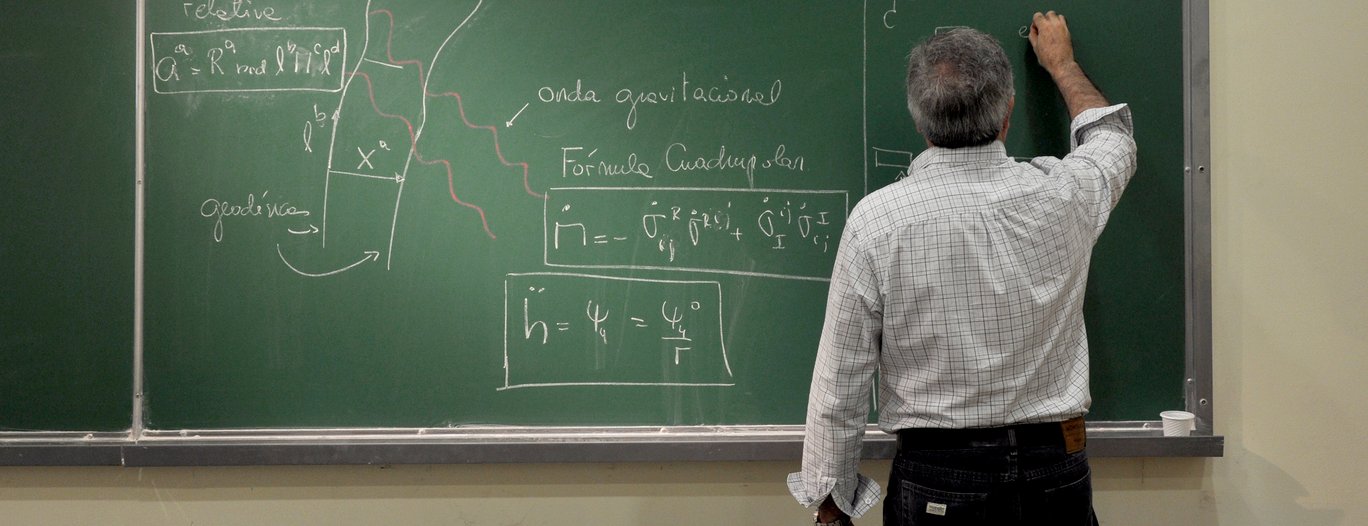 relative
a^a = R^a bcd l^b η^c l^d
l^b
X^a
geodésicas
onda gravitacional
Fórmula Cuadrupolar
ḧ = ψ₄ = ψ₄⁰ / r